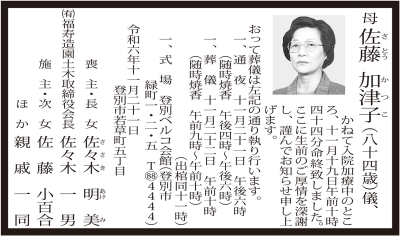 母 佐藤 加津子(八十四歳)儀、
さとう かつこ
かねて入院加療中のとこ
ろ、十一月十九日午前十時
四十四分命終致しました。
ここに生前のご厚情を深謝
し、謹んでお知らせ申し上
げます。
おって葬儀は左記の通り執り行います。
一、通夜 十一月二十一日 午後六時
(随時焼香 午後四時〜午後六時)
一、葬儀 十一月二十二日 午前十時
(随時焼香 午前九時〜午前十時)
(出棺同十一時)
一、式場 登別ベルコ会館(登別市
緑町一-二一-五 T88 4444)
令和六年十一月二十一日
登別市若草町五丁目
喪主・長女 佐々木 明美
ささき あけみ
(有)福寿造園土木取締役会長 佐々木 一男
施主・次女 佐藤 小百合
ほか 親戚一同